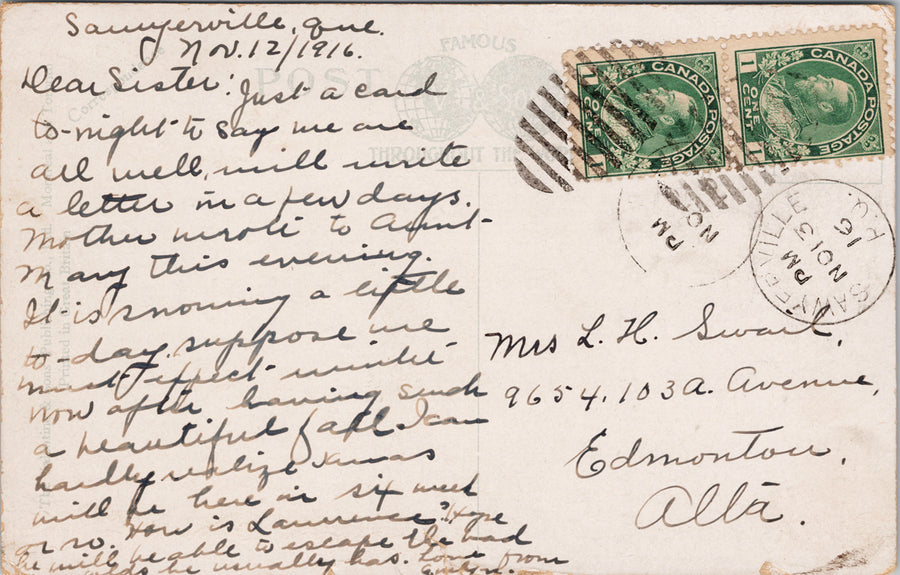 Sawyerville, Que.
Nov. 12/1916.
Dear Sister: Just a card
to-night to say we are
all well, will write
a letter in a few days.
Mother wrote to Aunt
Mary this evening.
It is snowing a little
to-day, suppose we
must expect winter
now after having such
a beautiful fall. I can
hardly realize Xmas
will be here in six week
or so. How is Lawrence? Hope
he will be able to escape the bad
colds he usually has. Love from
Evelyn.
FAMOUS
POST
THROUGHOUT THE
Correspondence
Printed in Great Britain
CANADA POSTAGE
1 ONE CENT 1
CANADA POSTAGE
1 ONE CENT 1
PM
NO
SAWYERVILLE
PM
NO 13
16
P.Q.
Mrs L. H. Swail,
9654. 103A. Avenue,
Edmonton,
Alta.